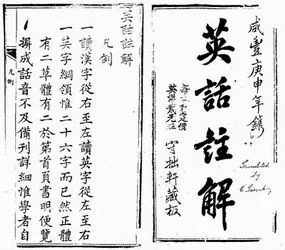 咸豐庚申年鐫
英話註解
守拙軒藏板
Translated
by
英話註解
凡例
一讀漢字從右至左讀英字從左至右
一英字綱領惟二十六字而已然正體
有二草體有二於第首頁書明便覽
摒成話音不及備刊詳細惟學者自
凡例